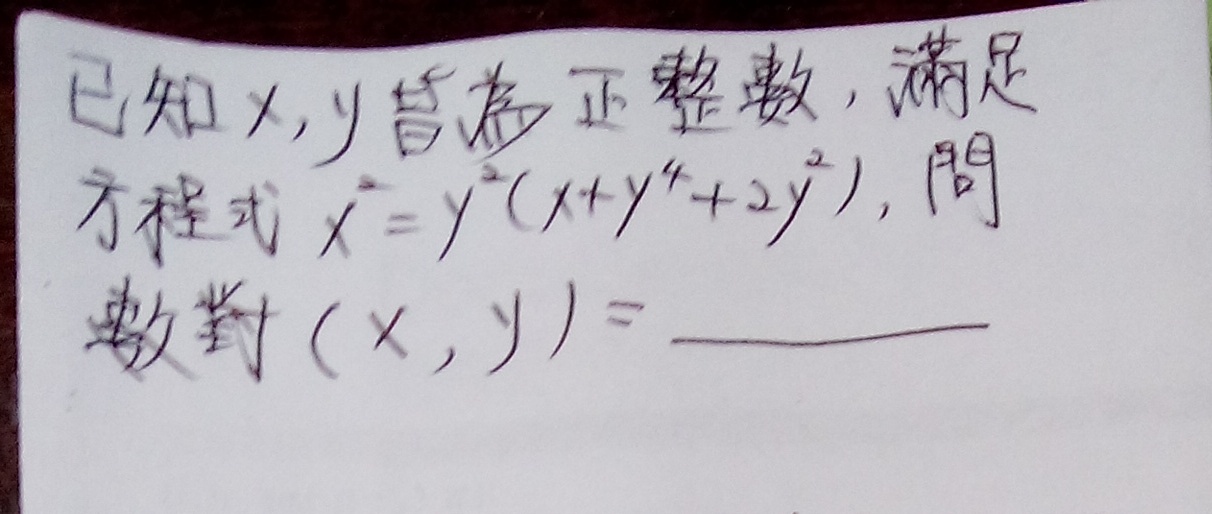 已知x,y皆為正整數,滿足
方程式 x²=y²(x+y⁴+2y²),問
數對(x,y)=______